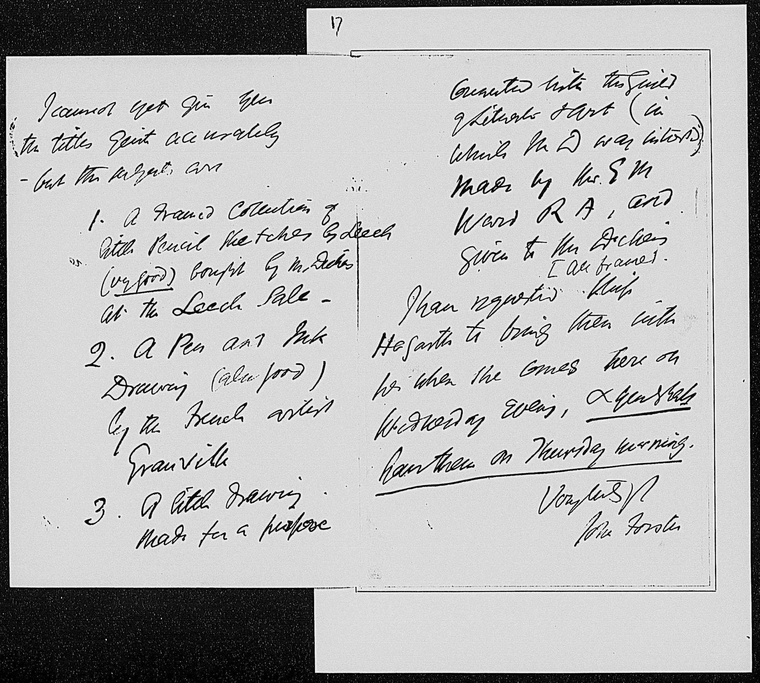 I cannot yet give you
the titles quite accurately
- but the subjects are
1. A framed Collection of
little Pencil Sketches by Leech
(very good) bought by Mr Dickens
at the Leech Sale -
2. A Pen and Ink
Drawing (also good)
by the French artist
Granville
3. A little drawing
made for a purpose
17
Connected with the Guild
of Literature & Art (in
which Mr D was interested)
made by Mr E M
Ward R A, and
given to Mr Dickens
[all framed.
I have requested Miss
Hogarth to bring them with
her when she comes here on
Wednesday Evening, & you shall
have them on Thursday morning.
John Forster